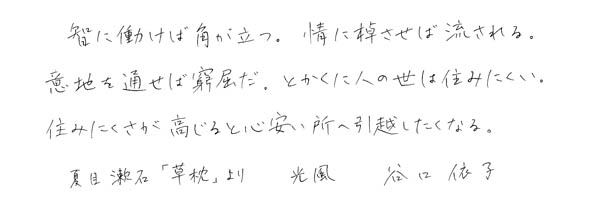 智に働けば角が立つ。情に棹させば流される。
意地を通せば窮屈だ。とかくに人の世は住みにくい。
住みにくさが高じると心安い所へ引越したくなる。
夏目漱石「草枕」より 光風 谷口依子